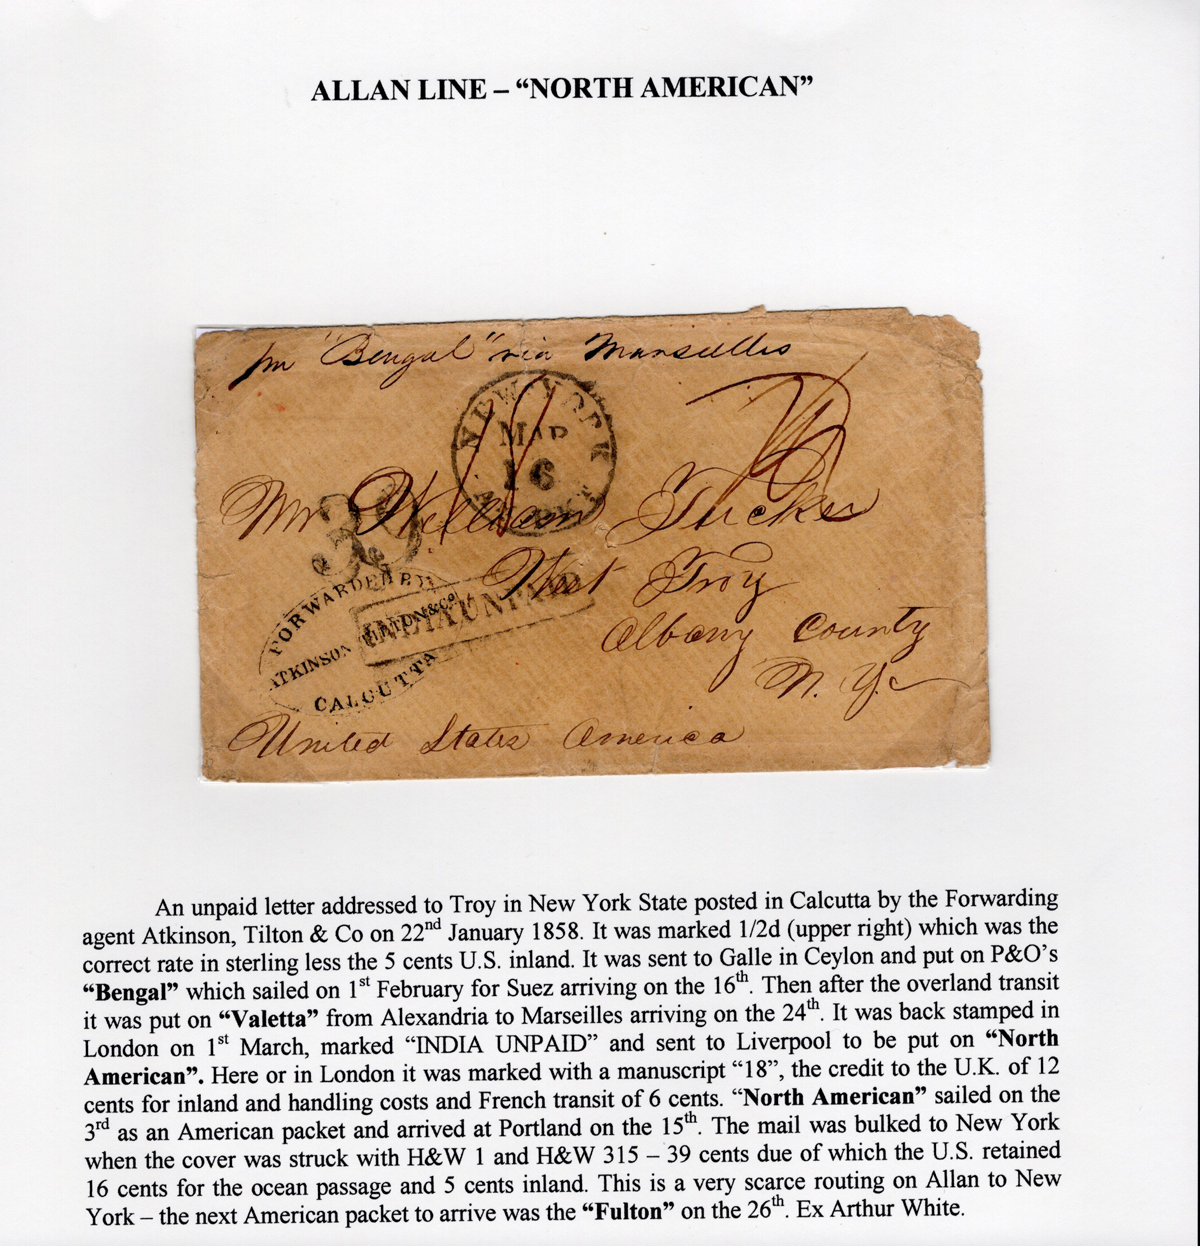 ALLAN LINE – “NORTH AMERICAN”
pr "Bengal" via Marseilles
NEW YORK
MAR
16
39
Mr William Tucker
West Troy
Albany County
N. Y.
FORWARDED BY
ATKINSON TILTON & Co
CALCUTTA
INDIA UNPAID
United States America
An unpaid letter addressed to Troy in New York State posted in Calcutta by the Forwarding
agent Atkinson, Tilton & Co on 22nd January 1858. It was marked 1/2d (upper right) which was the
correct rate in sterling less the 5 cents U.S. inland. It was sent to Galle in Ceylon and put on P&O’s
“Bengal” which sailed on 1st February for Suez arriving on the 16th. Then after the overland transit
it was put on “Valetta” from Alexandria to Marseilles arriving on the 24th. It was back stamped in
London on 1st March, marked “INDIA UNPAID” and sent to Liverpool to be put on “North
American”. Here or in London it was marked with a manuscript “18”, the credit to the U.K. of 12
cents for inland and handling costs and French transit of 6 cents. “North American” sailed on the
3rd as an American packet and arrived at Portland on the 15th. The mail was bulked to New York
when the cover was struck with H&W 1 and H&W 315 – 39 cents due of which the U.S. retained
16 cents for the ocean passage and 5 cents inland. This is a very scarce routing on Allan to New
York – the next American packet to arrive was the “Fulton” on the 26th. Ex Arthur White.